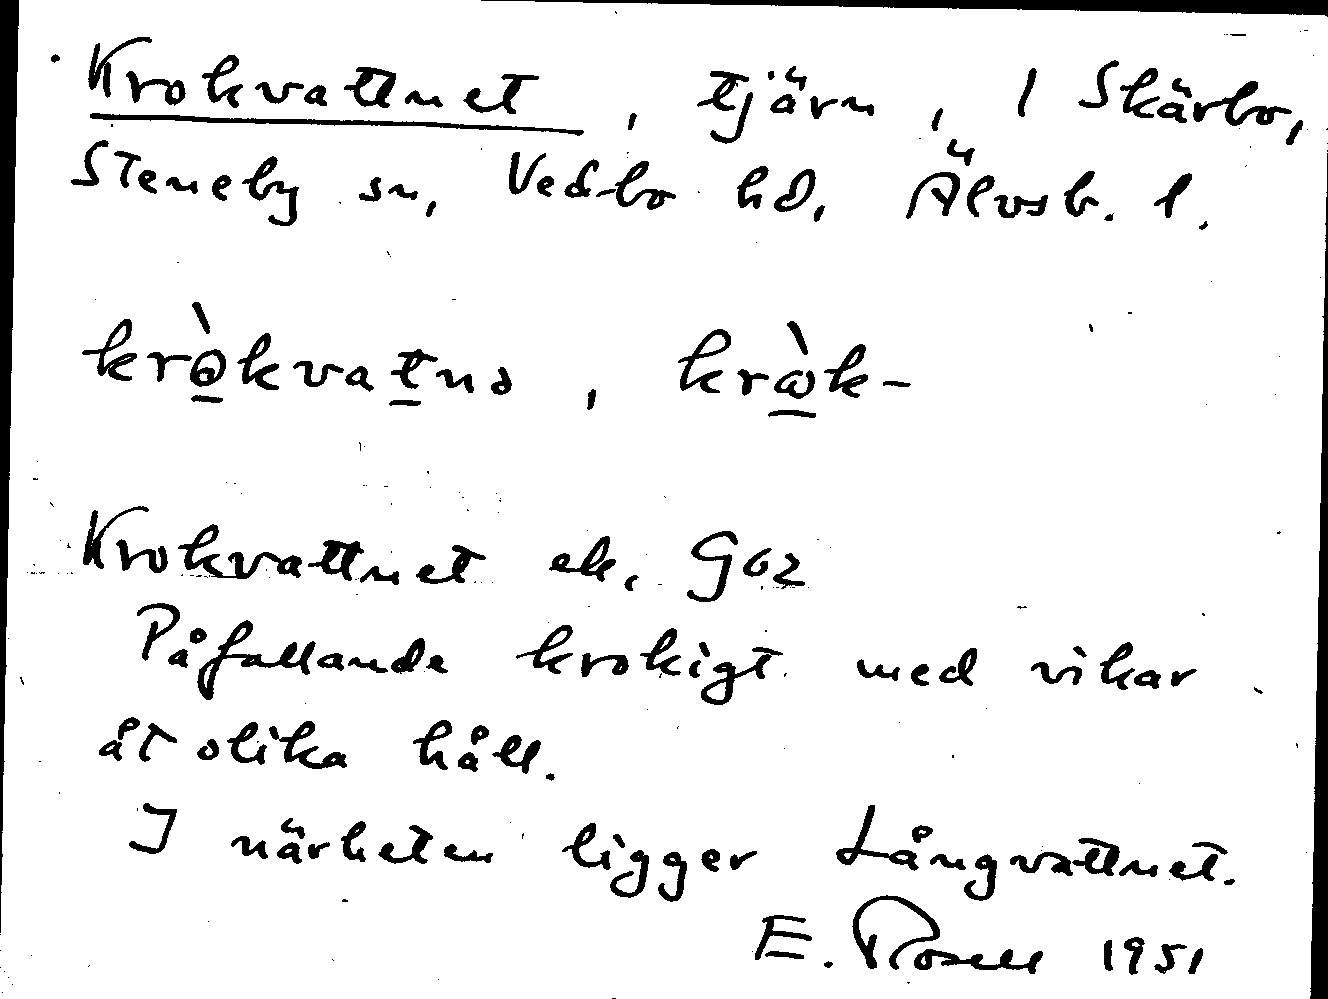 Krokvattnet, tjärn, 1 Skärbo,
Steneby sn, Vedbo hd, Älvsb. l.
krò̱kvaṯnə, krὼ̱k-
Krokvattnet ek. G62
Påfallande krokigt med vikar
åt olika håll.
I närheten ligger Långvattnet.
E. Rosell 1951